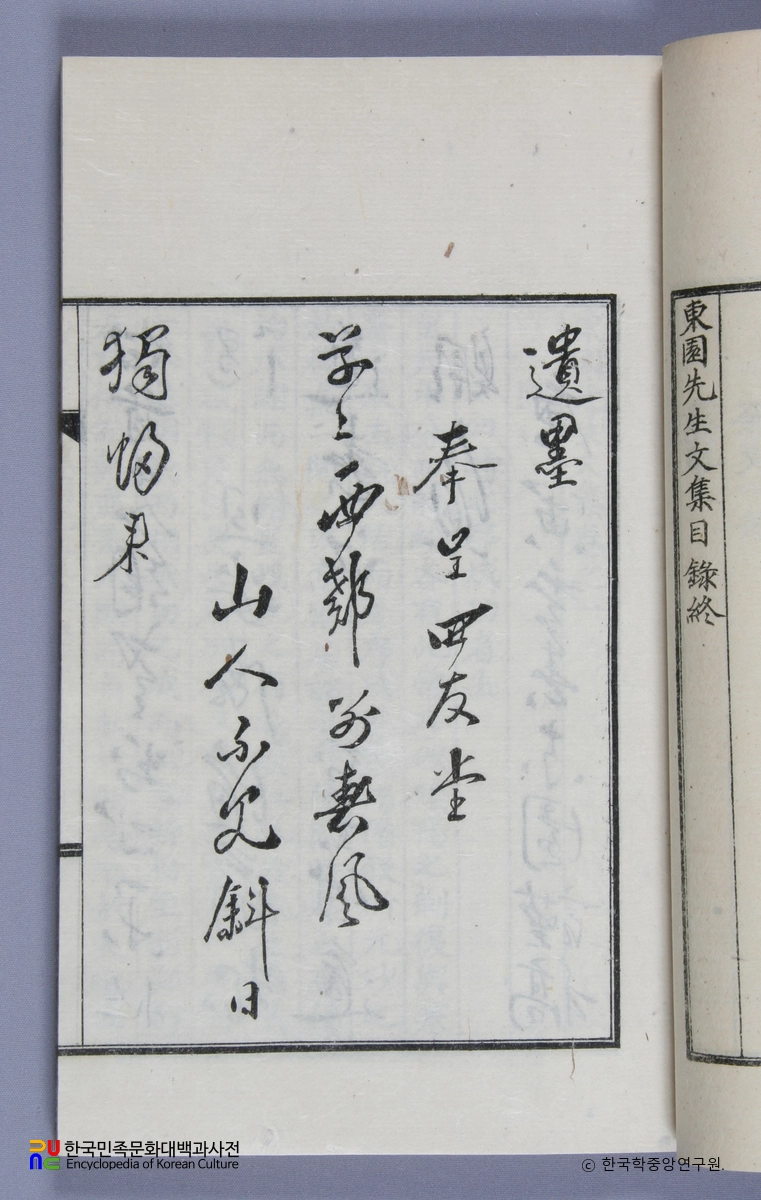 東園先生文集目錄終
遺墨
奉呈四友堂
草〻西 風
山人不見斜日
獨歸來
한국민족문화대백과사전
Encyclopedia of Korean Culture
ⓒ 한국학중앙연구원.